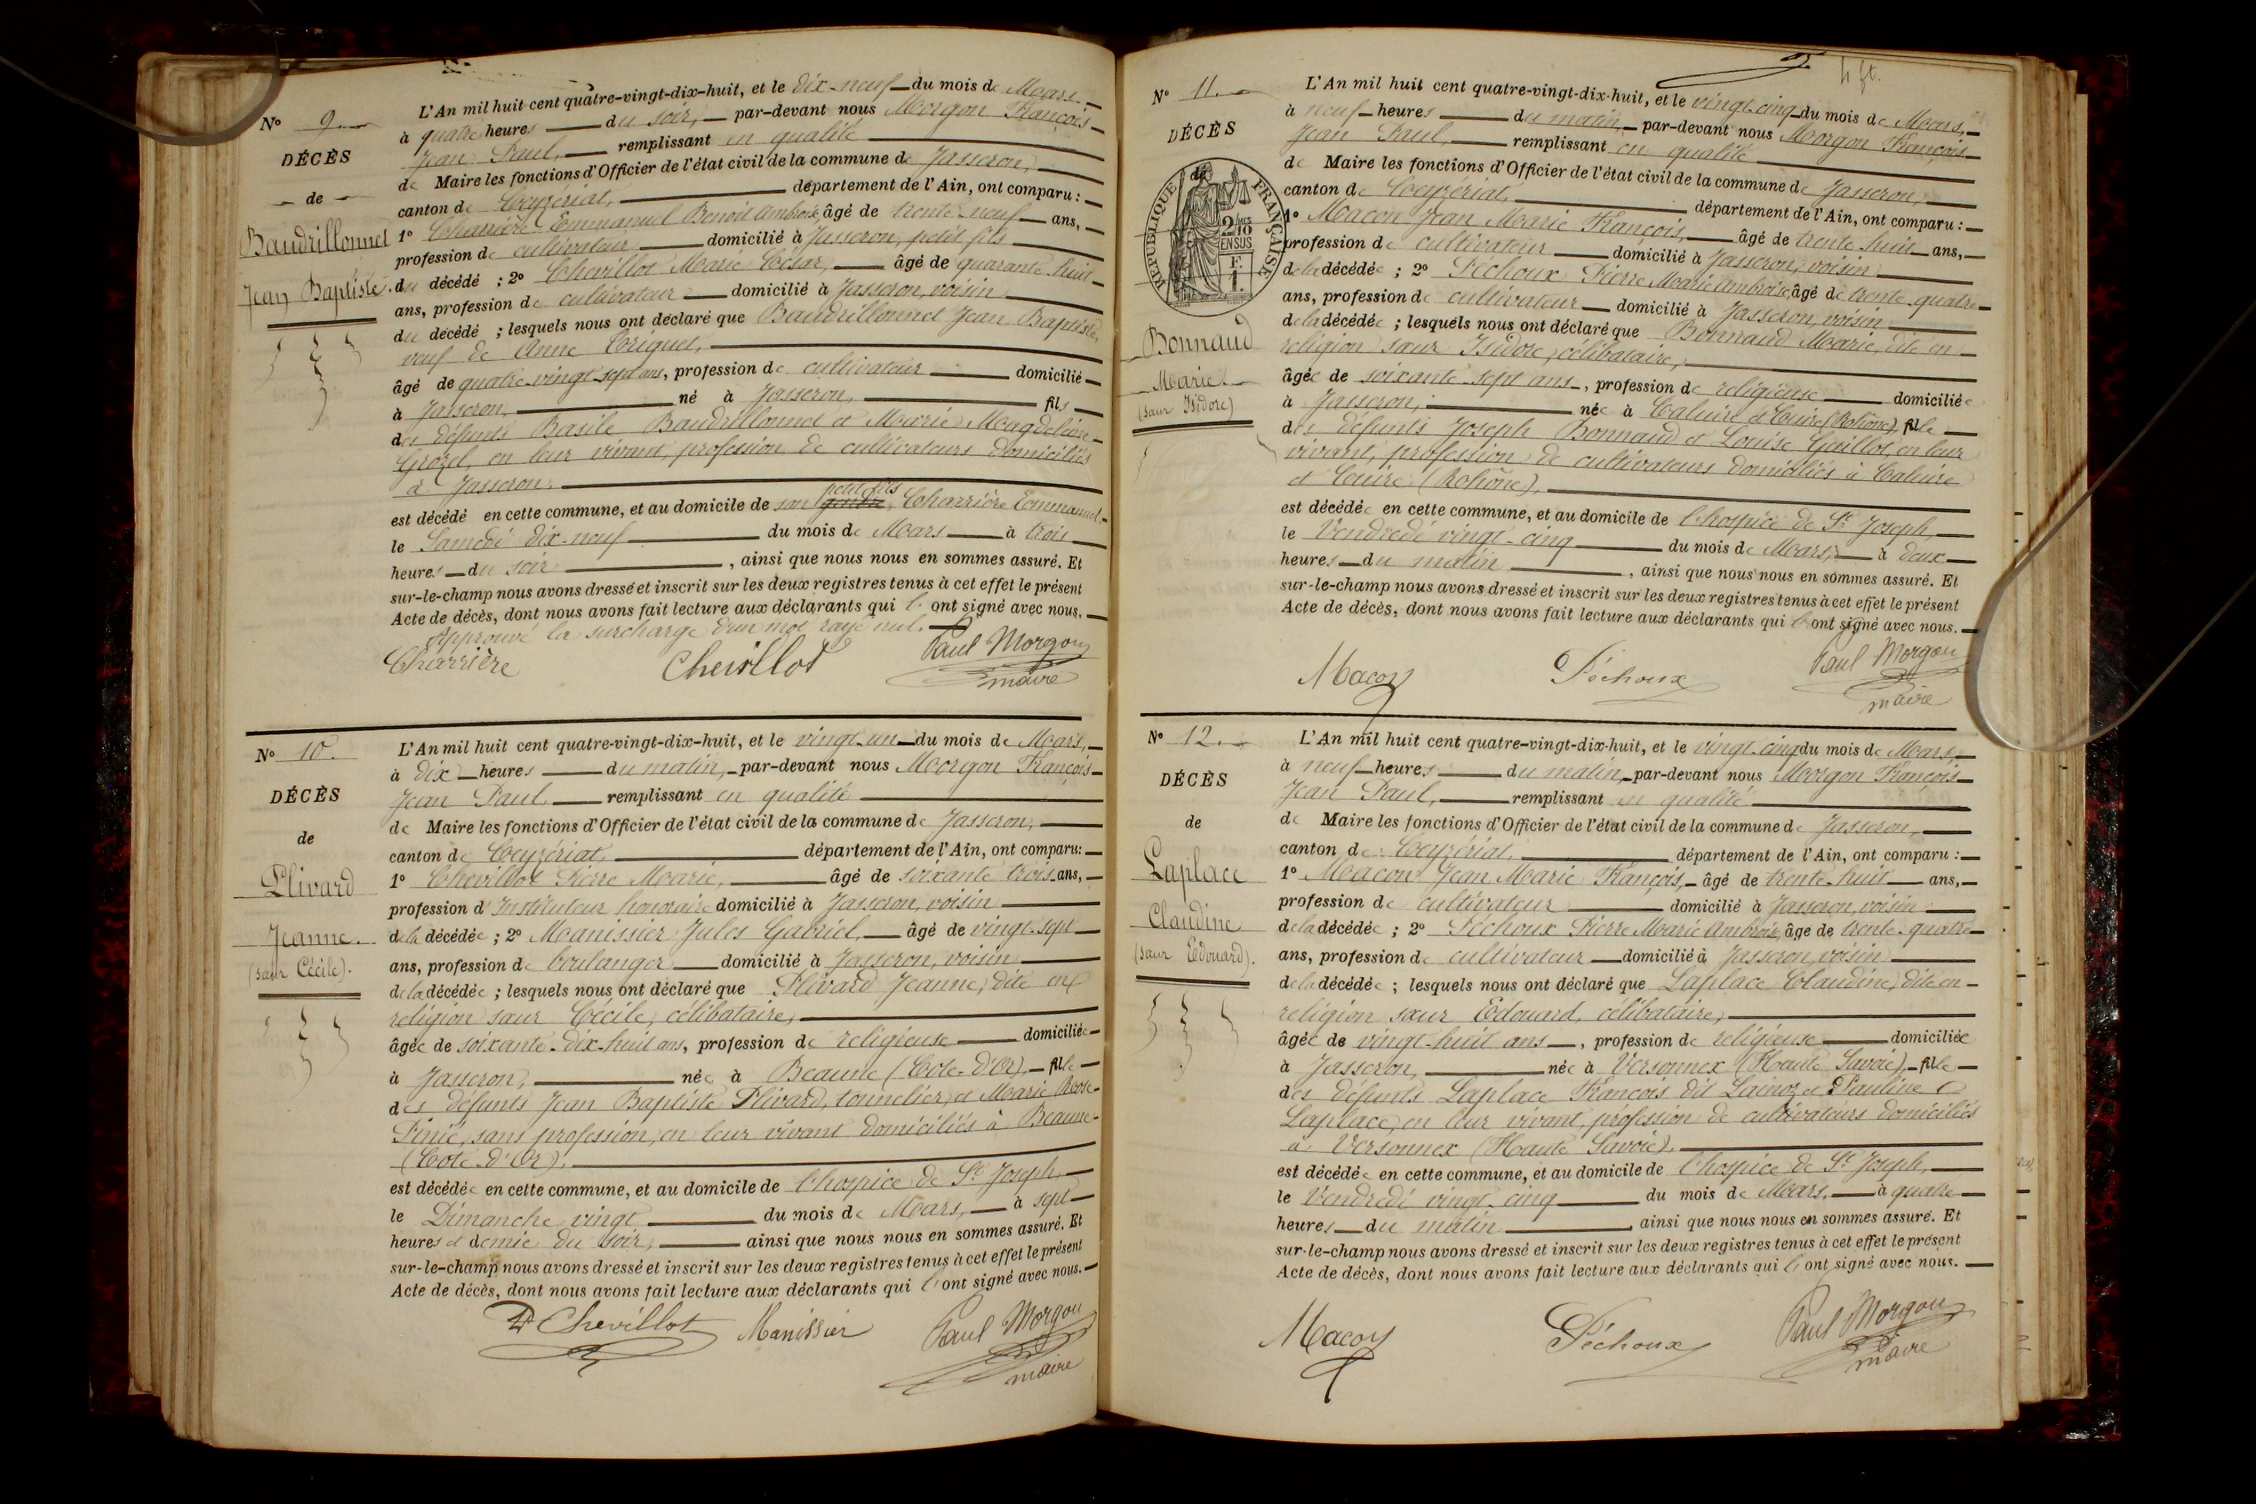 N° 9.
DÉCÈS
de
Baudrillonnet
Jean Baptiste.
L'An mil huit cent quatre-vingt-dix-huit, et le dix-neuf du mois de Mars
à quatre heures du soir, par-devant nous Morgon François
Jean Paul, remplissant en qualité
de Maire les fonctions d'Officier de l'état civil de la commune de Jasseron,
canton de Ceyzériat, département de l'Ain, ont comparu :
1° Charrière Emmanuel Benoit Ambroise, âgé de trente-neuf ans,
profession de cultivateur domicilié à Jasseron, petit fils
du décédé ; 2° Chevillot Marie César, âgé de quarante-huit
ans, profession de cultivateur domicilié à Jasseron, voisin
du décédé ; lesquels nous ont déclaré que Baudrillonnet Jean Baptiste,
veuf de Anne Criquet,
âgé de quatre-vingt-sept ans, profession de cultivateur domicilié
à Jasseron, né à Jasseron, fils
des défunts Basile Baudrillonnet et Marie Magdeleine
Grozel, en leur vivant, profession de cultivateurs domiciliés
à Jasseron,
est décédé en cette commune, et au domicile de son petit fils Charrière Emmanuel
le Samedi dix-neuf du mois de Mars à trois
heures du soir, ainsi que nous nous en sommes assuré. Et
sur-le-champ nous avons dressé et inscrit sur les deux registres tenus à cet effet le présent
Acte de décès, dont nous avons fait lecture aux déclarants qui l'ont signé avec nous.
Approuvé la surcharge d'un mot rayé nul.
Charrière Chevillot Paul Morgon
maire
N° 10.
DÉCÈS
de
Plivard
Jeanne.
(sœur Cécile).
L'An mil huit cent quatre-vingt-dix-huit, et le vingt-un du mois de Mars,
à dix heures du matin, par-devant nous Morgon François
Jean Paul, remplissant en qualité
de Maire les fonctions d'Officier de l'état civil de la commune de Jasseron,
canton de Ceyzériat, département de l'Ain, ont comparu:
1° Chevillot Pierre Marie, âgé de soixante trois ans,
profession d'Instituteur honoraire domicilié à Jasseron, voisin
de la décédée ; 2° Manissier Jules Gabriel, âgé de vingt-sept
ans, profession de boulanger domicilié à Jasseron, voisin
de la décédée ; lesquels nous ont déclaré que Plivard Jeanne, dite en
religion sœur Cécile, célibataire,
âgée de soixante-dix-huit ans, profession de religieuse domiciliée
à Jasseron, née à Beaune (Côte-d'Or), fille
des défunts Jean Baptiste Plivard, tonnelier, et Marie Rose
Finié, sans profession, en leur vivant domiciliés à Beaune
(Côte-d'Or),
est décédée en cette commune, et au domicile de l'hospice de St Joseph,
le Dimanche vingt du mois de Mars, à sept
heures et demie du soir, ainsi que nous nous en sommes assuré. Et
sur-le-champ nous avons dressé et inscrit sur les deux registres tenus à cet effet le présent
Acte de décès, dont nous avons fait lecture aux déclarants qui l'ont signé avec nous.
P Chevillot Manissier Paul Morgon
maire
4 ft.
N° 11.
DÉCÈS
de
RÉPUBLIQUE FRANÇAISE
2/10
EN SUS
Bonnaud
Marie.
(sœur Isidore)
L'An mil huit cent quatre-vingt-dix-huit, et le vingt-cinq du mois de Mars,
à neuf heures du matin, par-devant nous Morgon François
Jean Paul, remplissant en qualité
de Maire les fonctions d'Officier de l'état civil de la commune de Jasseron,
canton de Ceyzériat, département de l'Ain, ont comparu :
1° Macon Jean Marie François, âgé de trente-huit ans,
profession de cultivateur domicilié à Jasseron, voisin
de la décédée ; 2° Péchoux Pierre Marie Ambroise, âgé de trente-quatre
ans, profession de cultivateur domicilié à Jasseron, voisin
de la décédée ; lesquels nous ont déclaré que Bonnaud Marie, dite en
religion sœur Isidore, célibataire,
âgée de soixante-sept ans, profession de religieuse domiciliée
à Jasseron, née à Caluire et Cuire (Rohône), fille
des défunts Joseph Bonnaud et Louise Guillot, en leur
vivant, profession de cultivateurs domiciliés à Caluire
et Cuire (Rohône),
est décédée en cette commune, et au domicile de l'hospice de St Joseph,
le Vendredi vingt-cinq du mois de Mars, à deux
heures du matin, ainsi que nous nous en sommes assuré. Et
sur-le-champ nous avons dressé et inscrit sur les deux registres tenus à cet effet le présent
Acte de décès, dont nous avons fait lecture aux déclarants qui l'ont signé avec nous.
Macon Péchoux Paul Morgon
maire
N° 12.
DÉCÈS
de
Laplace
Claudine
(sœur Edouard).
L'An mil huit cent quatre-vingt-dix-huit, et le vingt-cinq du mois de Mars,
à neuf heures du matin, par-devant nous Morgon François
Jean Paul, remplissant en qualité
de Maire les fonctions d'Officier de l'état civil de la commune de Jasseron,
canton de Ceyzériat, département de l'Ain, ont comparu :
1° Macon Jean Marie François, âgé de trente-huit ans,
profession de cultivateur domicilié à Jasseron, voisin
de la décédée ; 2° Péchoux Pierre Marie Ambroise, âgé de trente-quatre
ans, profession de cultivateur domicilié à Jasseron, voisin
de la décédée ; lesquels nous ont déclaré que Laplace Claudine, dite en
religion sœur Edouard, célibataire,
âgée de vingt-huit ans, profession de religieuse domiciliée
à Jasseron, née à Versonnex (Haute Savoie), fille
des défunts Laplace François dit Lainoz et Pauline
Laplace, en leur vivant, profession de cultivateurs domiciliés
à Versonnex (Haute Savoie),
est décédée en cette commune, et au domicile de l'hospice de St Joseph,
le Vendredi vingt-cinq du mois de Mars, à quatre
heures du matin, ainsi que nous nous en sommes assuré. Et
sur-le-champ nous avons dressé et inscrit sur les deux registres tenus à cet effet le présent
Acte de décès, dont nous avons fait lecture aux déclarants qui l'ont signé avec nous.
Macon Péchoux Paul Morgon
maire